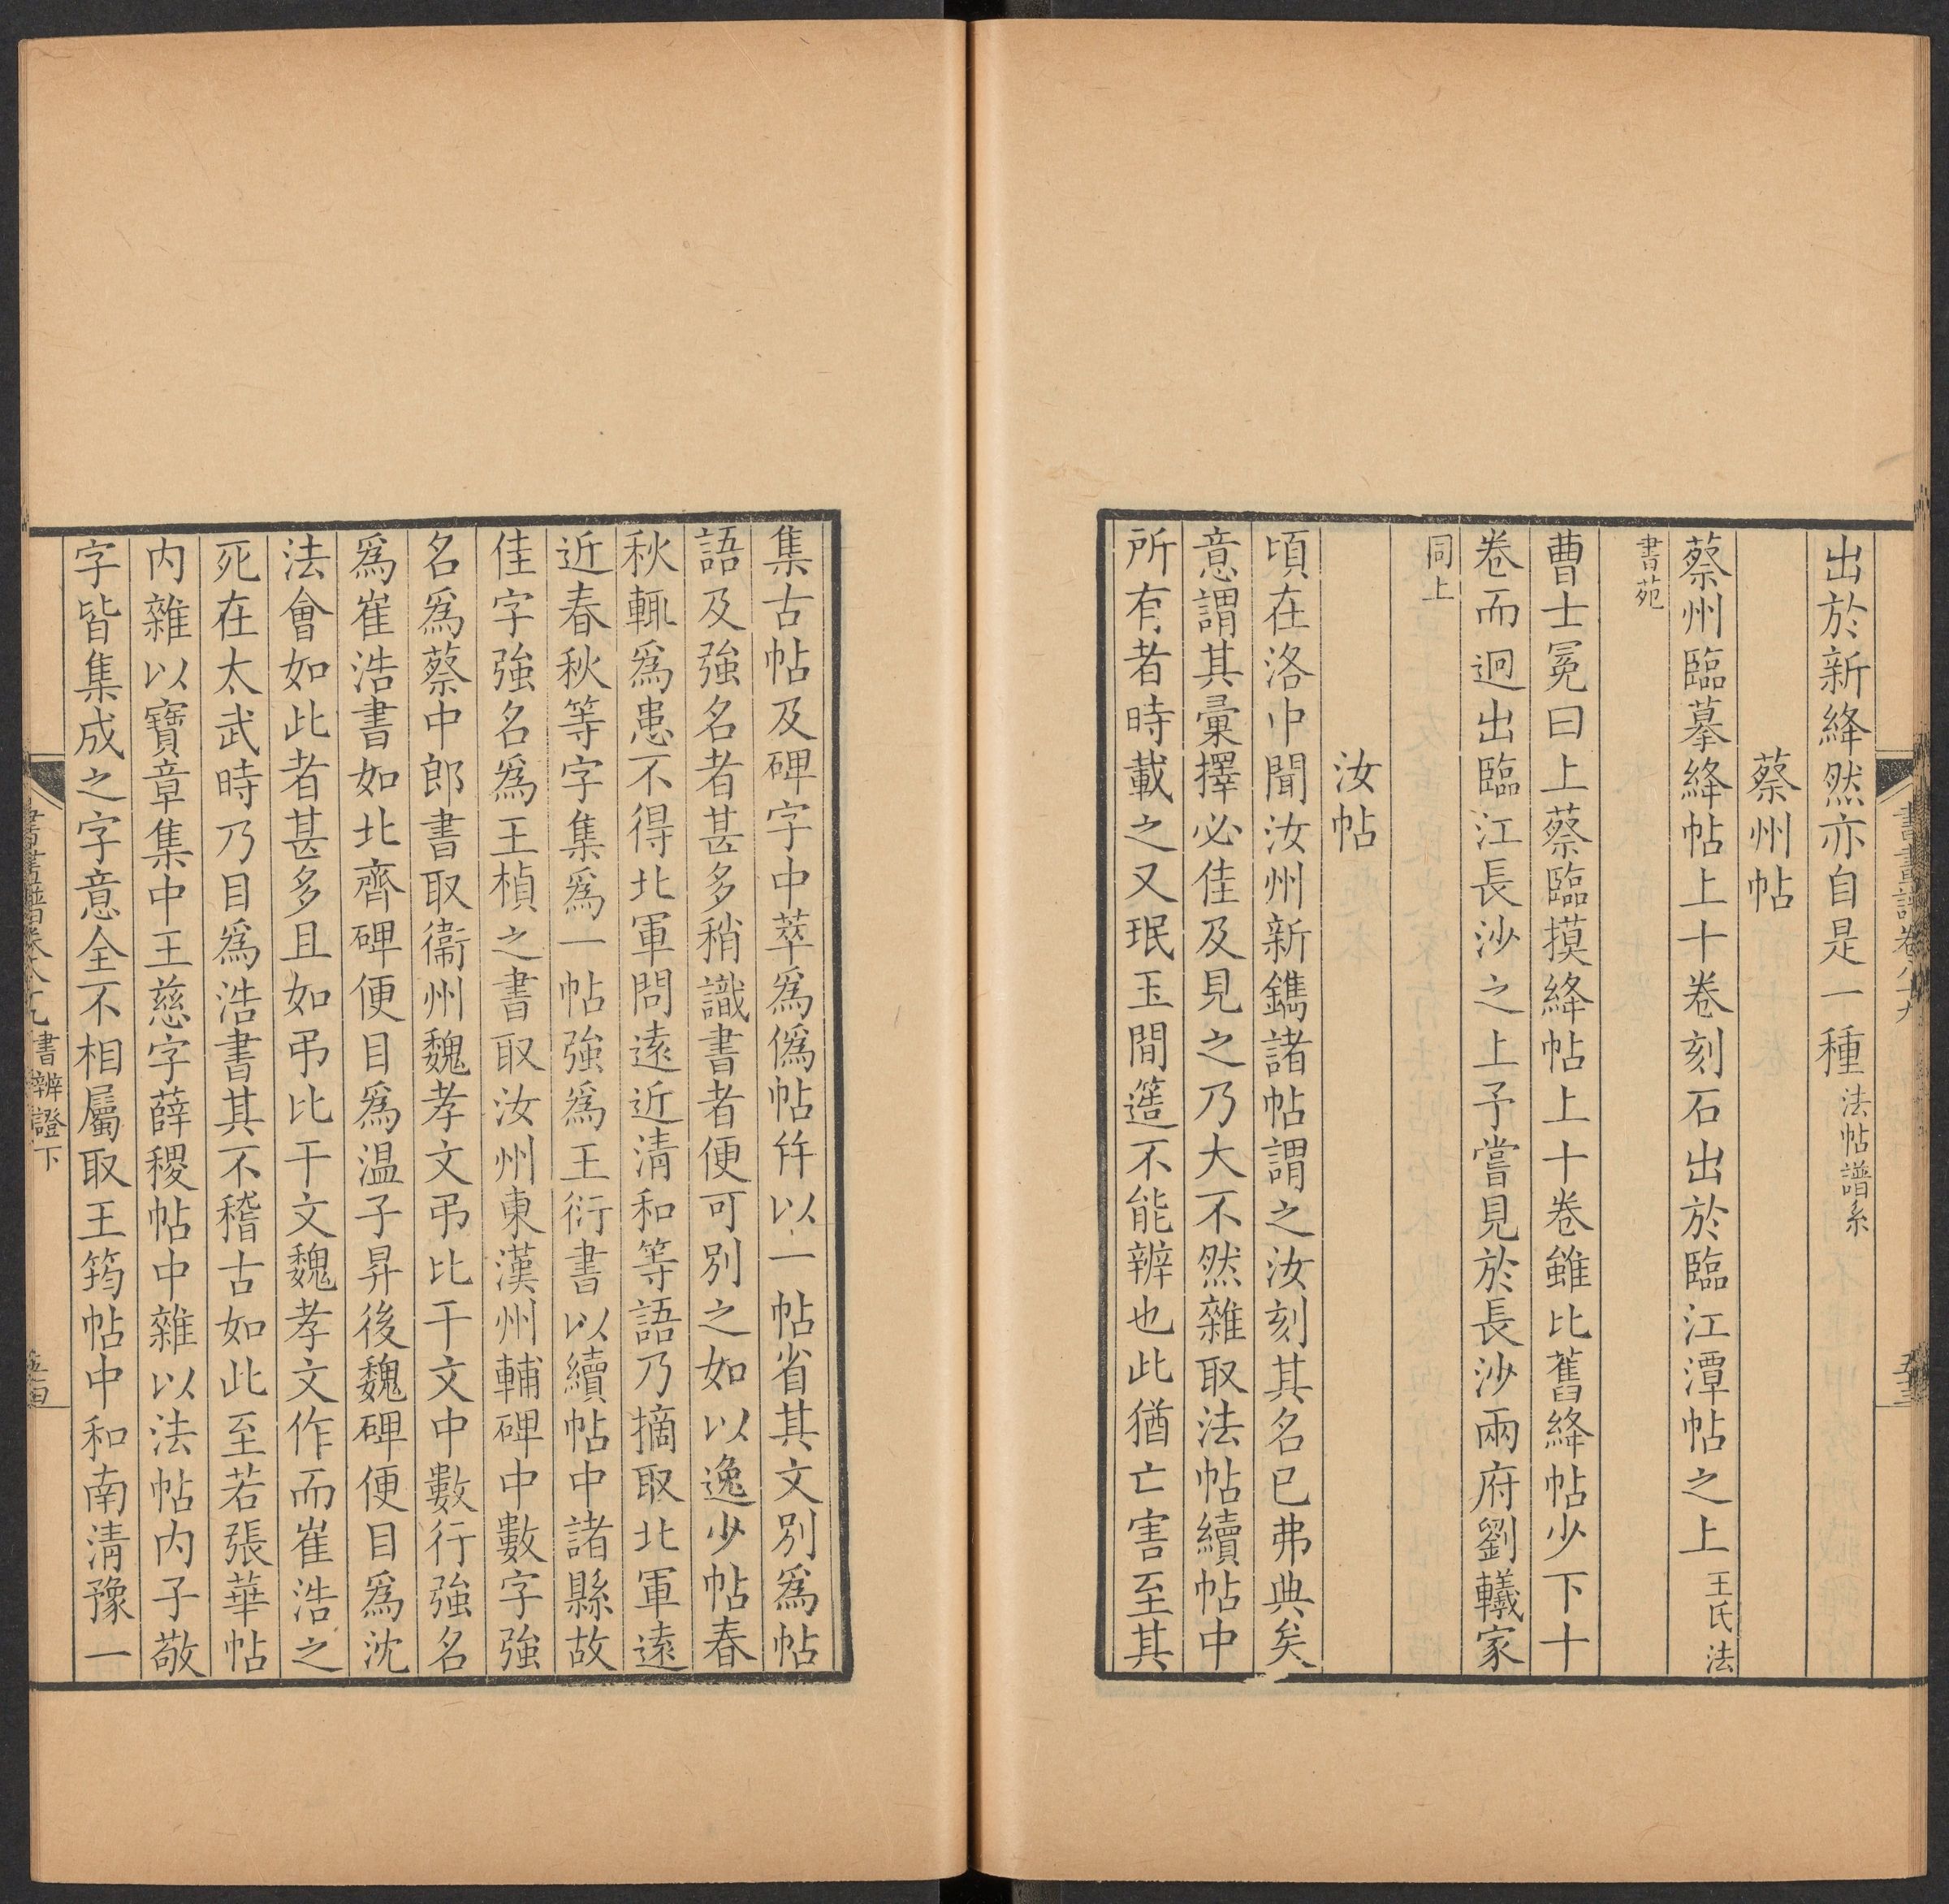 出於新絳然亦自是一種法帖譜系
蔡州帖
蔡州臨摹絳帖上十卷刻石出於臨江潭帖之上王氏法
書苑
曹士冕曰上蔡臨摸絳帖上十卷雖比舊絳帖少下十
卷而迥出臨江長沙之上予嘗見於長沙兩府劉轙家
同上
汝帖
頃在洛中聞汝州新鐫諸帖謂之汝刻其名已弗典矣
意謂其彙擇必佳及見之乃大不然雜取法帖續帖中
所有者時載之又珉玉間簉不能辨也此猶亡害至其
集古帖及碑字中萃爲僞帖并以一帖省其文別爲帖
語及強名者甚多稍識書者便可別之如以逸少帖春
秋輒爲恚不得北軍問遠近清和等語乃摘取北軍遠
近春秋等字集爲一帖強爲王衍書以續帖中諸縣故
佳字強名爲王楨之書取汝州東漢州輔碑中數字強
名爲蔡中郎書取衞州魏孝文弔比干文中數行強名
爲崔浩書如北齊碑便目爲温子昇後魏碑便目爲沈
法會如此者甚多且如弔比干文魏孝文作而崔浩之
死在太武時乃目爲浩書其不稽古如此至若張華帖
内雜以寶章集中王慈字薛稷帖中雜以法帖内子敬
字皆集成之字意全不相屬取王筠帖中和南清豫一
書畫譜卷八十九 書辨證下